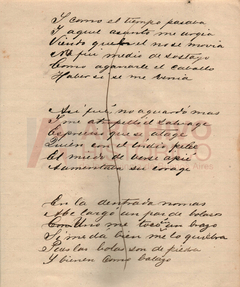 Y como el tiempo pasaba
Y aquel asunto me urgia
Viendo que el no se movia
Me fui medio de soslayo
Como agarrarle el caballo
Haber si se me venia
Asi fué no aguardó mas
Y me atropelló el salvage
Es preciso que se ataje
Quien con el indio pelée
El miedo de verse apié
Aumentaba su corage
En la dentrada nomas
Me largó un par de bolasos
Uno me tocó un brazo
Si me da bien me lo quiebra
Pues las bolas son de piedra
Y bienen como balazo